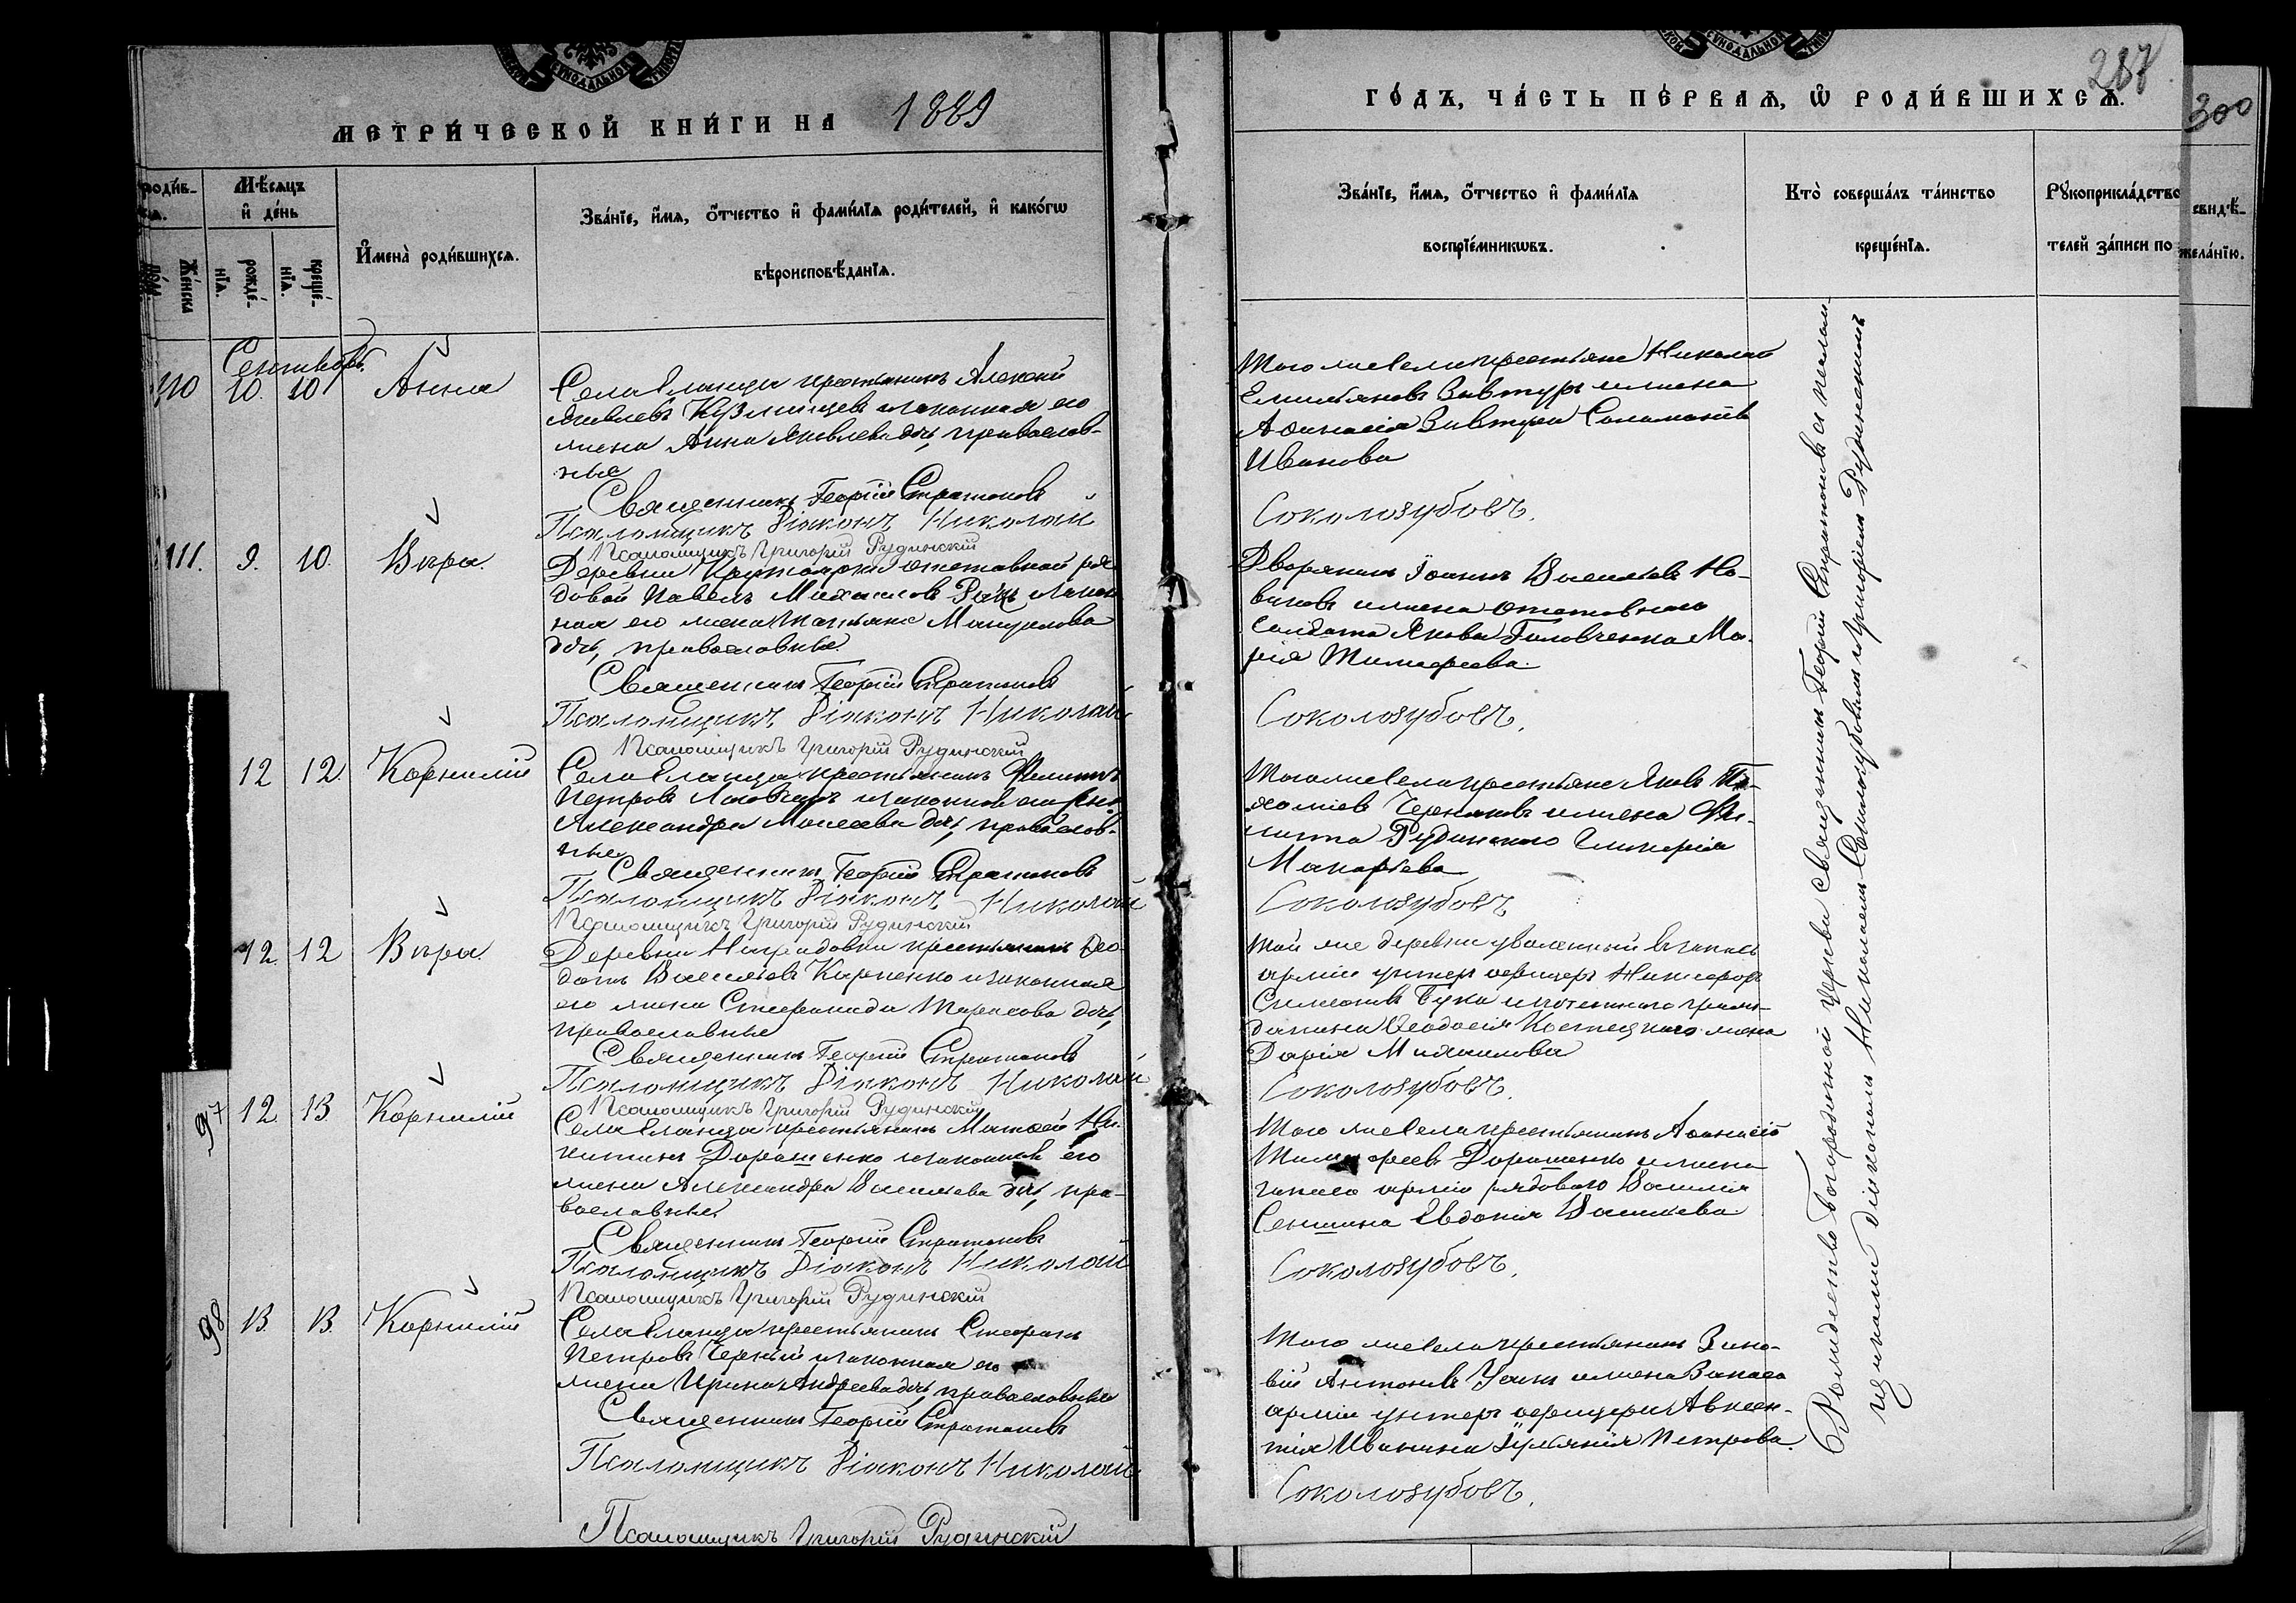 МЕТРИ́ЧЕСКОЙ КНИ́ГИ НА 1889
роди́в-
Мѣ́сяцъ
и҆ де́нь
Же́нска
рожде́-
нїѧ.
креще́-
нїѧ.
И҆мена̀ роди́вшихсѧ.
Зва́нїе, и҆́мѧ, ѻ҆́тчество и҆ фами́лїѧ роди́телей, и҆ како́гѡ
вѣроисповѣ́данїѧ.
Сентябрь
110 10. 10 Анна
Села Еланца крестьянинъ Алексій
Яковлевъ Кузминцевъ и законная его
жена Анна Яковлева дочь, православ-
ные
Священникъ Георгій Стратоновъ
Псаломщикъ Діаконъ Николай
Псаломщикъ Григорій Рудинскій
111. 9. 10. Вѣра.
Деревни отставной ря
довой Павелъ Михаиловъ и закон
ная его жена Татьяна
дочь, православные
Священникъ Георгій Стратоновъ
Псаломщикъ Діаконъ Николай
Псаломщикъ Григорій Рудинскій
12 12. Корнилій
Села Еланца крестьянинъ Филиппъ
Петровъ и законная его жена
Александра Моисеева дочь, православ-
ные
Священникъ Георгій Стратоновъ
Псаломщикъ Діаконъ Николай
Псаломщикъ Григорій Рудинскій
12. 12 Вѣра.
Деревни крестьянинъ Ѳео-
дотъ Васильевъ Карпенко и законная
его жена Стефанида Тарасова дочь,
православные
Священникъ Георгій Стратоновъ
Псаломщикъ Діаконъ Николай
Псаломщикъ Григорій Рудинскій
97 12. 13. Корнилій
Села Еланца крестьянинъ Матѳей Ни-
китинъ Дорошенко и законная его
жена Александра Васильева дочь, пра-
вославные
Священникъ Георгій Стратоновъ
Псаломщикъ Діаконъ Николай
Псаломщикъ Григорій Рудинскій
98 13. 13. Корнилій
Села Еланца крестьянинъ Стефанъ
Петровъ Черный и законная его
жена Ирина Андреева дочь, православные
Священникъ Георгій Стратоновъ
Псаломщикъ Діаконъ Николай
Псаломщикъ Григорій Рудинскій
287
300
ГО́ДЪ, ЧА́СТЬ ПЕ́РВАѦ, Ѡ҆ РОДИ́ВШИХСѦ.
Зва́нїе, и҆́мѧ, ѻ҆́тчество и҆ фами́лїѧ
воспрїе́мникѡвъ.
Кто̀ соверша́лъ та́инство
креще́нїѧ.
Рꙋкоприкла́дство свидѣ́-
телей за́писи по жела́нїю.
Того же села крестьяне Николай
Емильяновъ Вивтуръ и жена
Аѳанасія Вивтура Соломонія
Иванова
Соколозубовъ.
Дворянинъ Іоаннъ Васильевъ Но-
виковъ и жена отставнаго
солдата Якова Головченко Ма-
рія Тимофеева.
Соколозубовъ.
Того же села крестьяне Яковъ Па-
хоміевъ Черняковъ и жена Фи-
липпа Рудинскаго Гликерія
Макарьева
Соколозубовъ
Той же деревни уволенный въ запасъ
арміи унтеръ офицеръ Никифоръ
Симеоновъ Бука и почетнаго граж-
данина Ѳеодосія Костецкаго жена
Дарія Михаилова
Соколозубовъ.
Того же села крестьянинъ Аѳанасій
Тимофеевъ Дорошенко и жена
запаса арміи рядоваго Василія
Сеншина Евдокія Васильева.
Соколозубовъ.
Того же села крестьянинъ Зино-
вій Антоновъ Усикъ и жена Запаса
арміи унтеръ офицера Авксен-
тія Иванина Іуліанія Петрова.
Соколозубовъ.
Рождество Богородичной церкви священникъ Георгій Стратоновъ съ псалом-
щиками діакономъ Николаемъ Соколозубовымъ и Григоріемъ Рудинскимъ